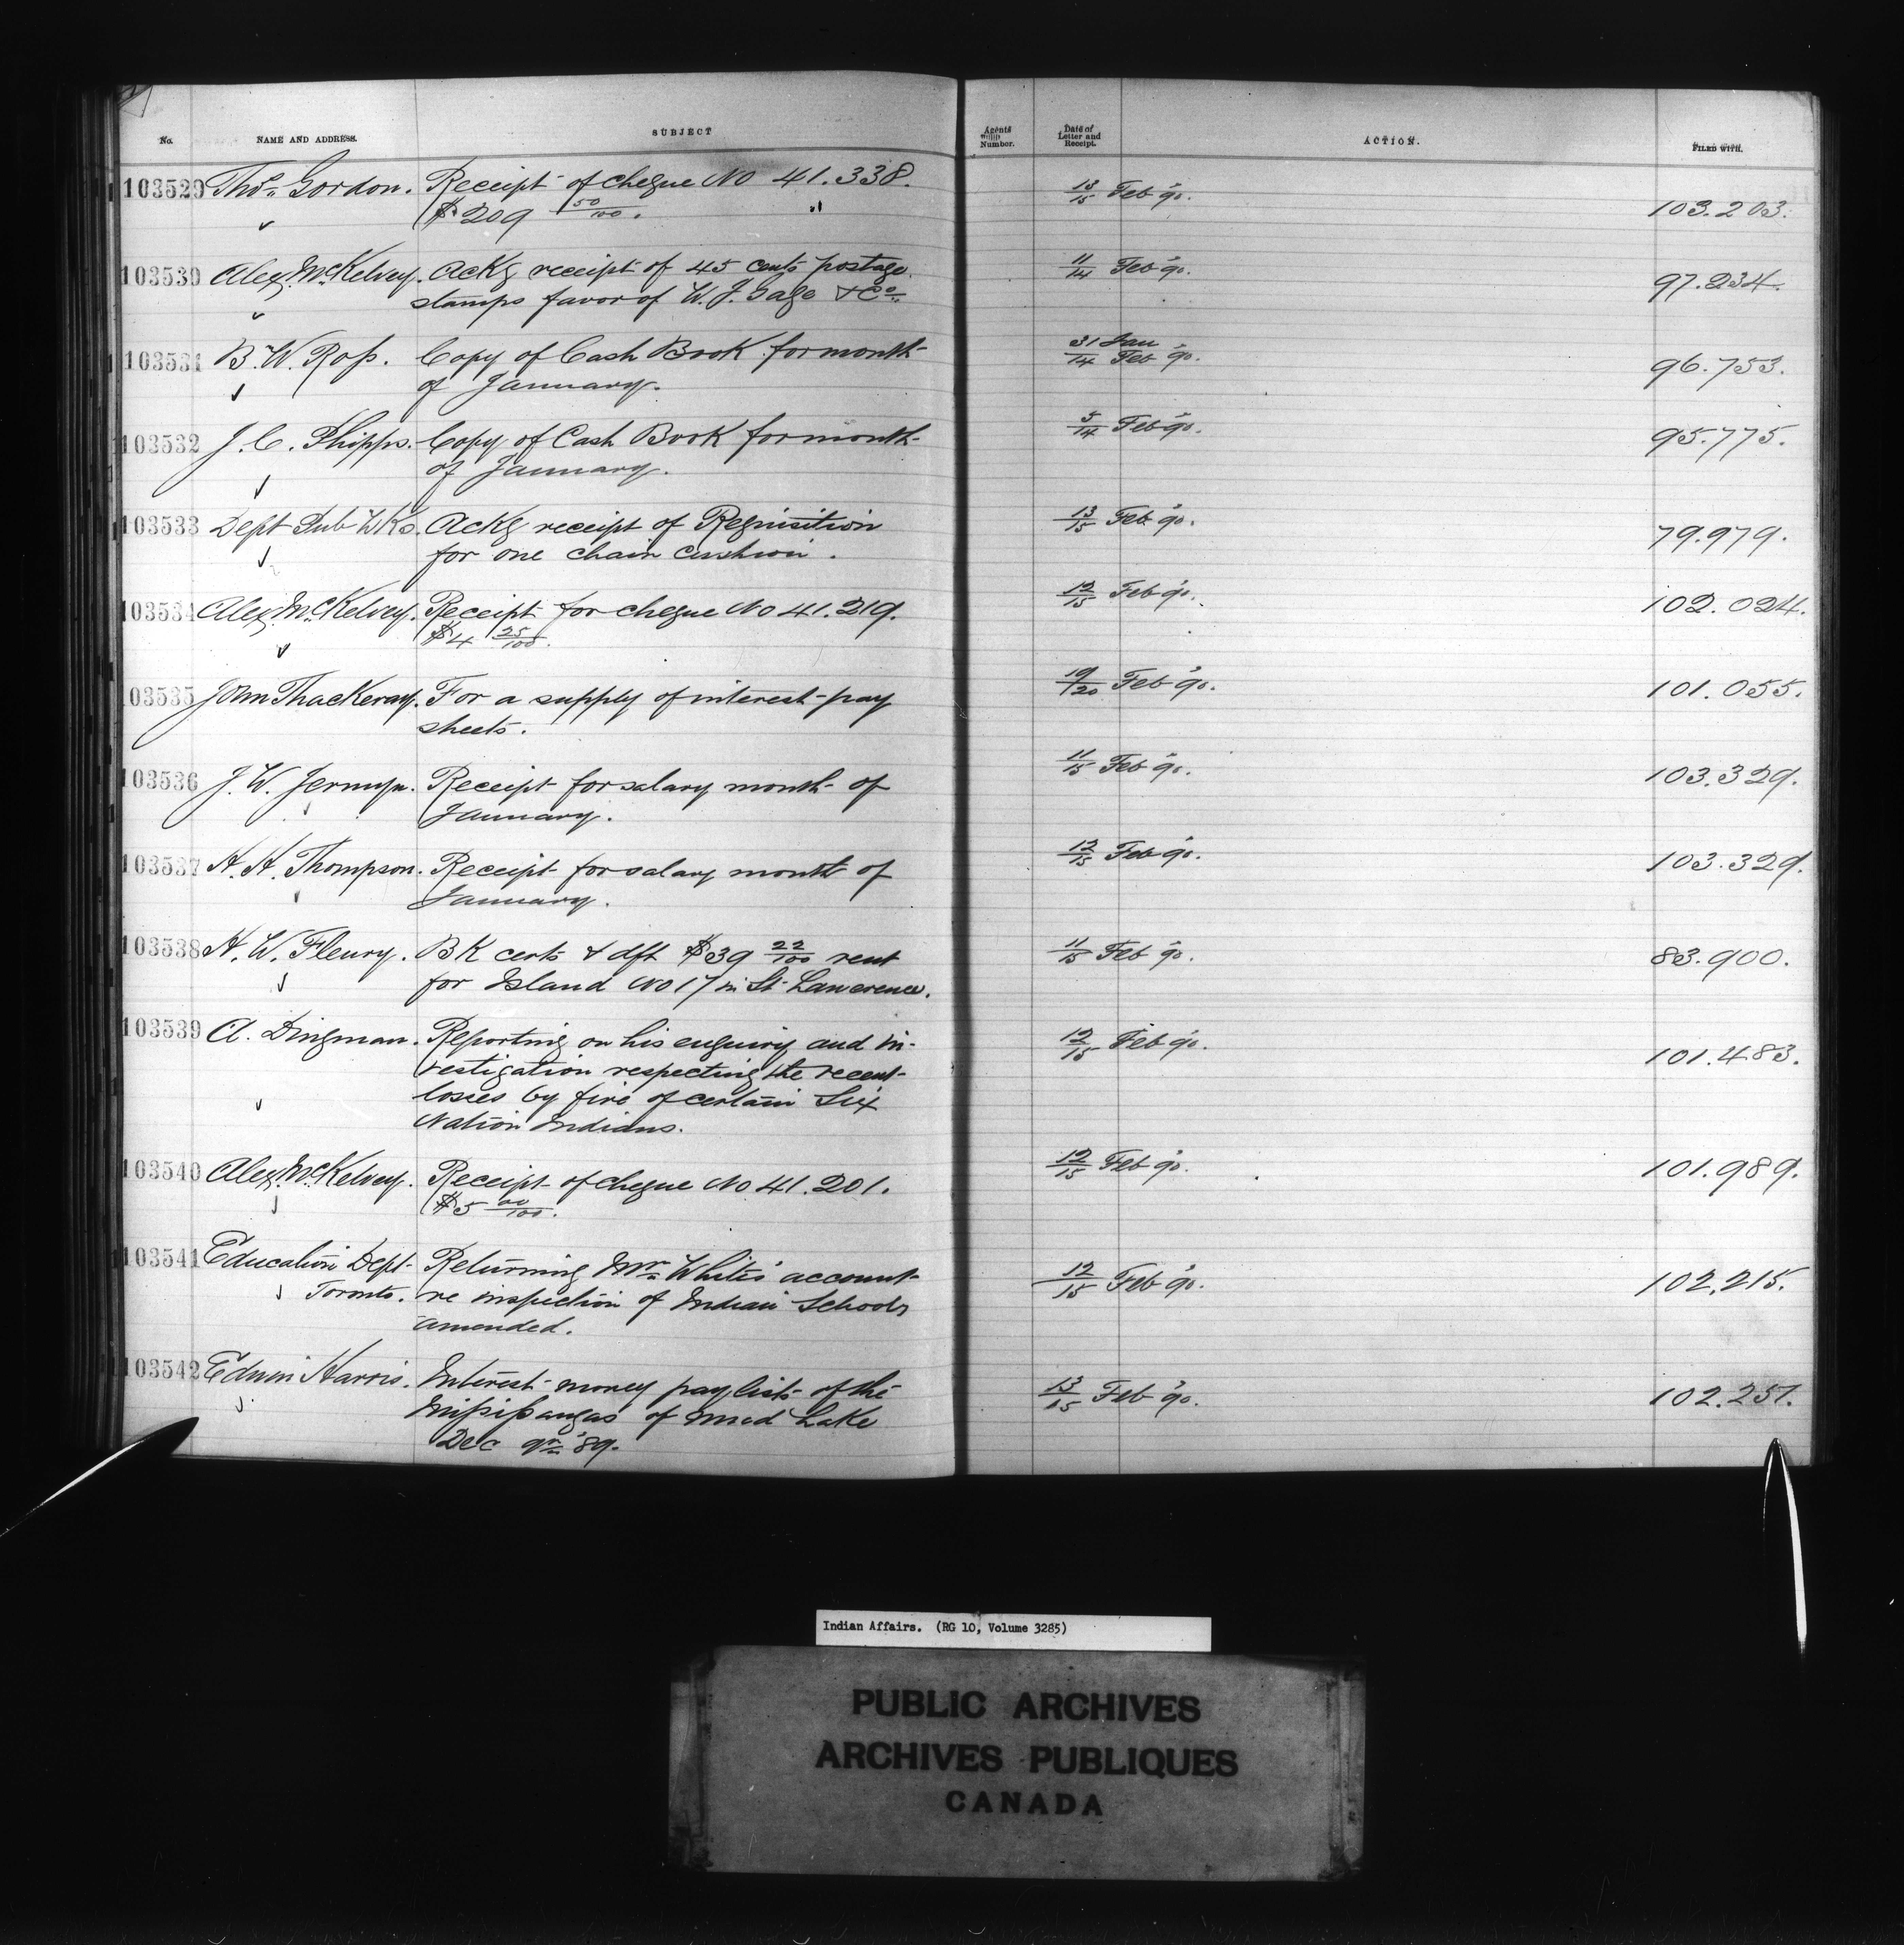 No. NAME AND ADDRESS. SUBJECT Agents Number. Date of Letter and Receipt. ACTION. FILED WITH.
103529 Thos. Gordon. Receipt of cheque No 41.338. 13/15 Feb '90. 103.203.
$209 50/100.
103530 Alex. McKelvey. Ackg receipt of 45 cents postage 11/14 Feb '90. 97.234.
stamps favor of W. J. Gage & Co.
103531 B. W. Ross. Copy of Cash Book for month 31 Jan/14 Feb '90. 96.753.
of January.
103532 J. C. Phipps. Copy of Cash Book for month 5/14 Feb '90. 95.775.
of January.
103533 Dept Pub Wks. Ackg receipt of Requisition 13/15 Feb '90. 79.979.
for one chair cushion.
103534 Alex. McKelvey. Receipt for cheque No 41.219. 12/15 Feb '90. 102.024.
$4 25/100.
103535 John Thackeray. For a supply of interest pay 19/20 Feb '90. 101.055.
sheets.
103536 J. W. Jermyn. Receipt for salary month of 11/15 Feb '90. 103.329.
January.
103537 H. H. Thompson. Receipt for salary month of 12/15 Feb '90. 103.329.
January.
103538 H. W. Fleury. BK certs & dft $39 22/100 rent 11/15 Feb '90. 83.900.
for Island No 17 in St. Lawerence.
103539 A. Dingman. Reporting on his enquiry and in- 12/15 Feb '90. 101.483.
vestigation respecting the recent
losses by fire of certain Six
Nation Indians.
103540 Alex. McKelvey. Receipt of cheque No 41.201. 12/15 Feb '90. 101.989.
$5 00/100.
103541 Education Dept Returning Mr. White's account 12/15 Feb '90. 102.215.
Toronto. re inspection of Indian Schools
amended.
103542 Edwin Harris. Interest money paylists of the 13/15 Feb '90. 102.257.
Mississaugas of Mud Lake
Dec qr '89.
Indian Affairs. (RG 10, Volume 3285)
PUBLIC ARCHIVES
ARCHIVES PUBLIQUES
CANADA